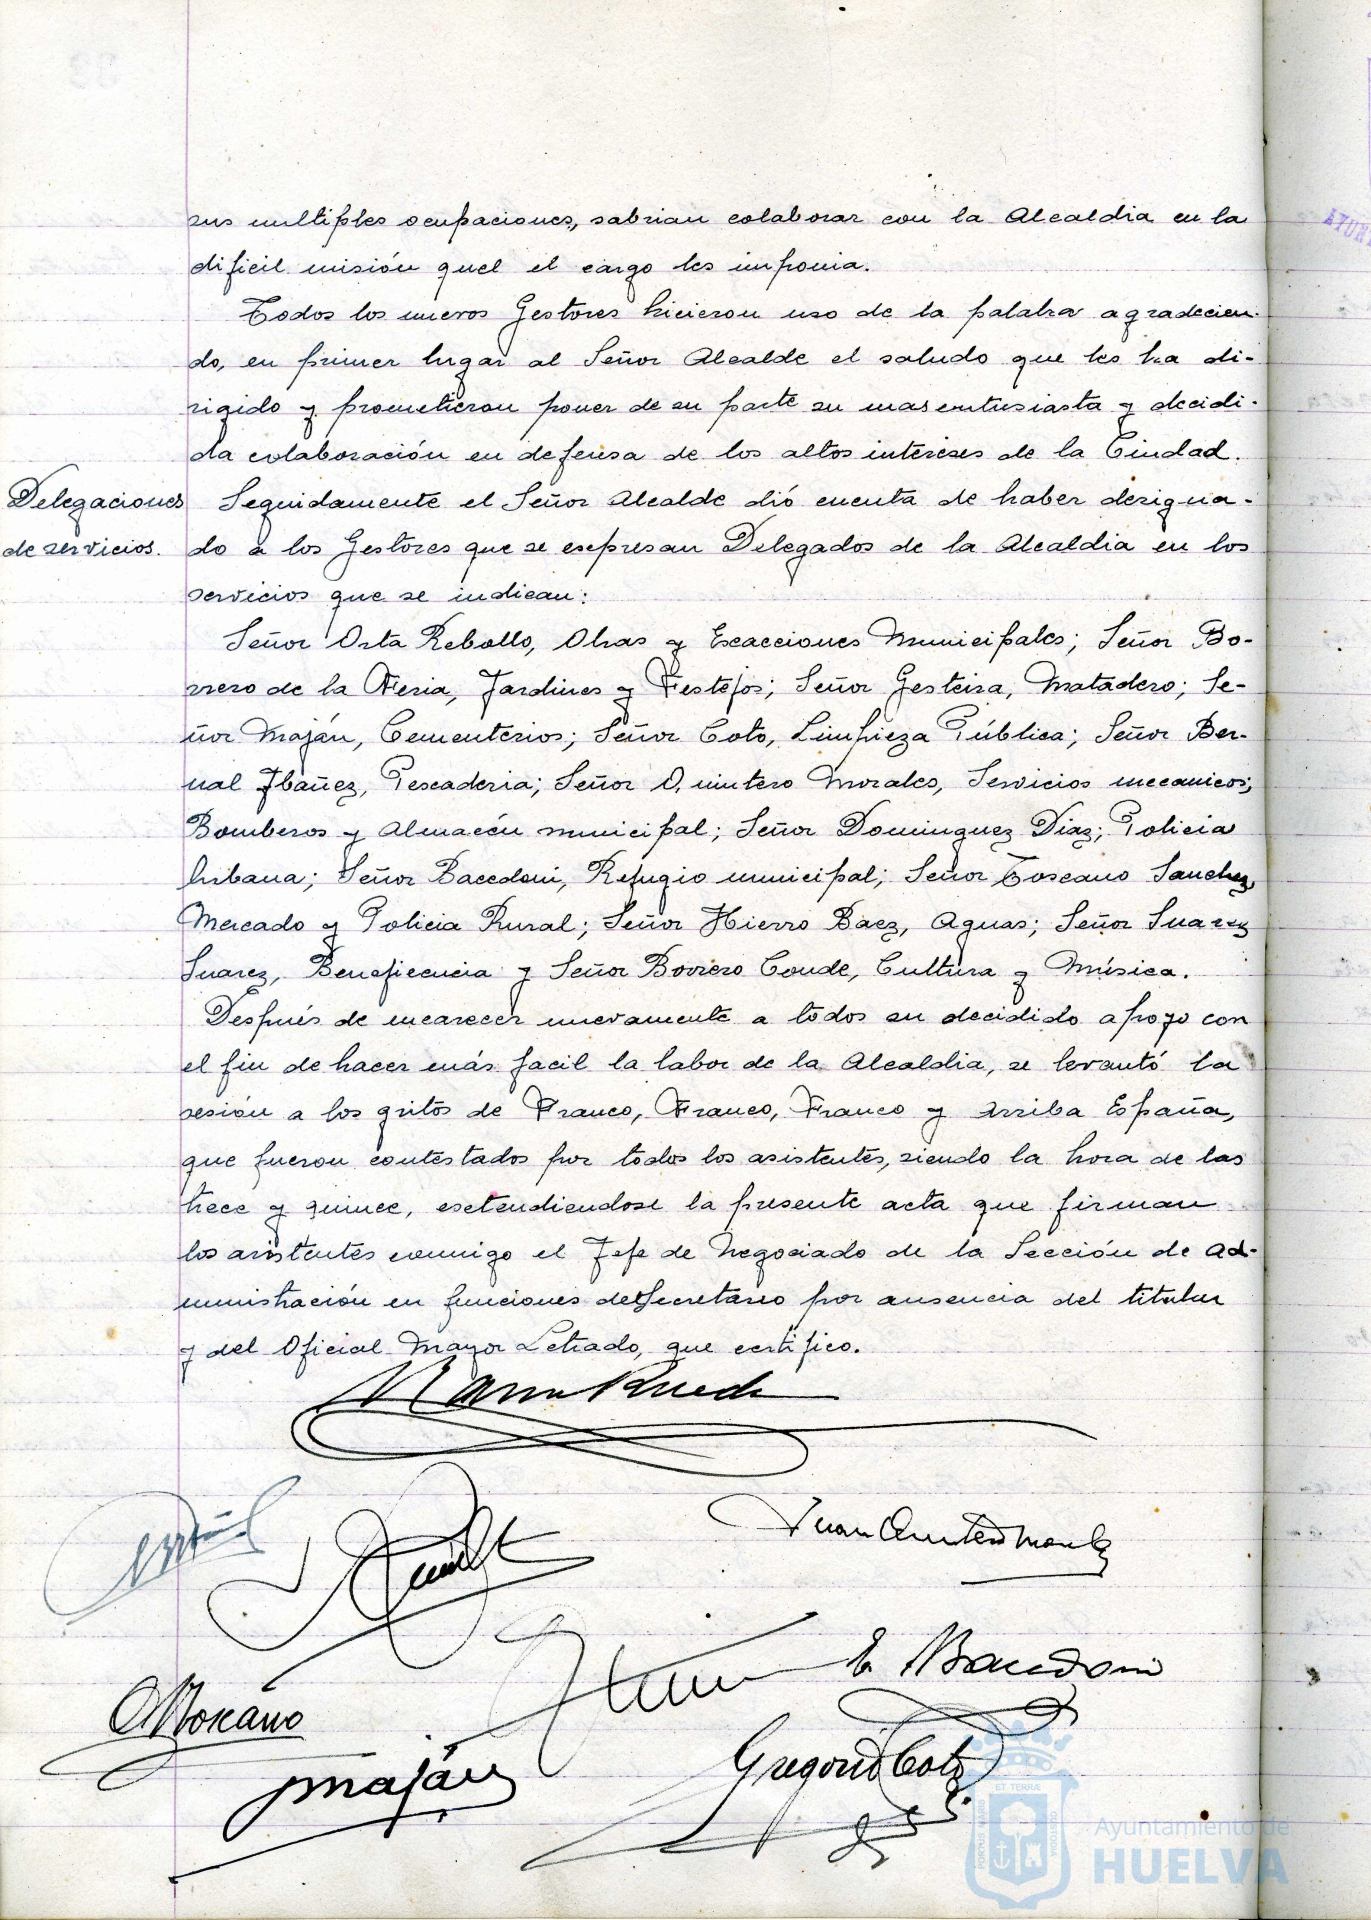 sus multiples ocupaciones, sabrian colaborar con la Alcaldia en la
dificil misión quel el cargo les imponia.
Todos los nuevos Gestores hicieron uso de la palabra agradecien-
do, en primer lugar al Señor Alcalde el saludo que les ha di-
rigido y prometieron poner de su parte su mas entusiasta y decidi-
da colaboración en defensa de los altos intereses de la Ciudad.
Delegaciones
de servicios.
Seguidamente el Señor Alcalde dió cuenta de haber designa-
do a los Gestores que se escpresan Delegados de la Alcaldia en los
servicios que se indican:
Señor Orta Rebollo, Obras y Escacciones Municipales; Señor Bo-
rrero de la Feria, Jardines y Festejos; Señor Gesteira, Matadero; Se-
ñor Maján, Cementerios; Señor Coto, Limpieza Pública; Señor Ber-
nal Ibañez, Pescaderia; Señor Quintero Morales, Servicios mecanicos;
Bomberos y Almacén municipal; Señor Dominguez Diaz; Policia
Urbana; Señor Bacedoni, Refugio municipal; Señor Toscano Sanchez,
Mercado y Policia Rural; Señor Hierro Baez, Aguas; Señor Suarez
Suarez, Beneficencia y Señor Borrero Conde, Cultura y Música.
Después de encarecer nuevamente a todos su decidido apoyo con
el fin de hacer más facil la labor de la Alcaldia, se levantó la
sesión a los gritos de Franco, Franco, Franco y Arriba España,
que fueron contestados por todos los asistentes, siendo la hora de las
trece y quince, esctendiendose la presente acta que firman
los asistentes conmigo el Jefe de Negociado de la Sección de Ad-
ministración en funciones de Secretario por ausencia del titular
y del Oficial Mayor Letrado, que certifico.
Juan Quintero Morales
E. Bacedoni
Toscano
Maján
Gregorio Coto
PORTUS MARIS ET TERRAE CUSTODIA
Ayuntamiento de
HUELVA